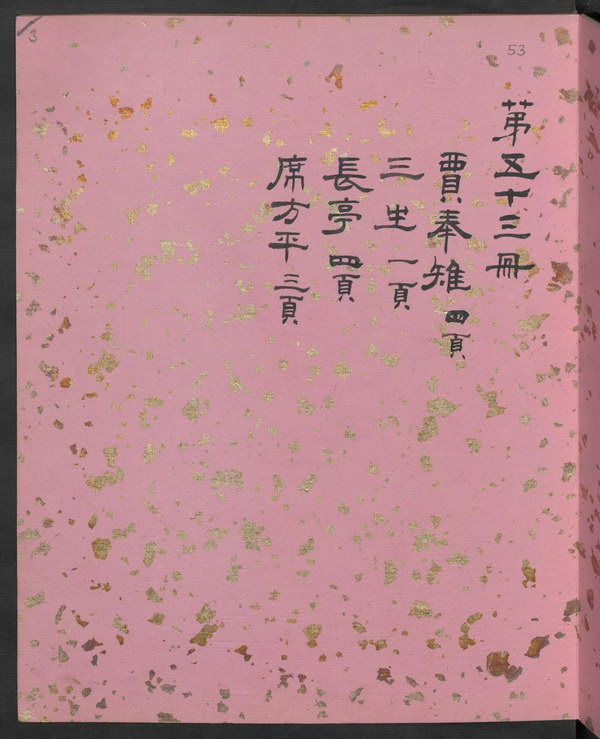 3
53
第五十三冊
賈奉雉 四頁
三生 一頁
長亭 四頁
席方平 三頁